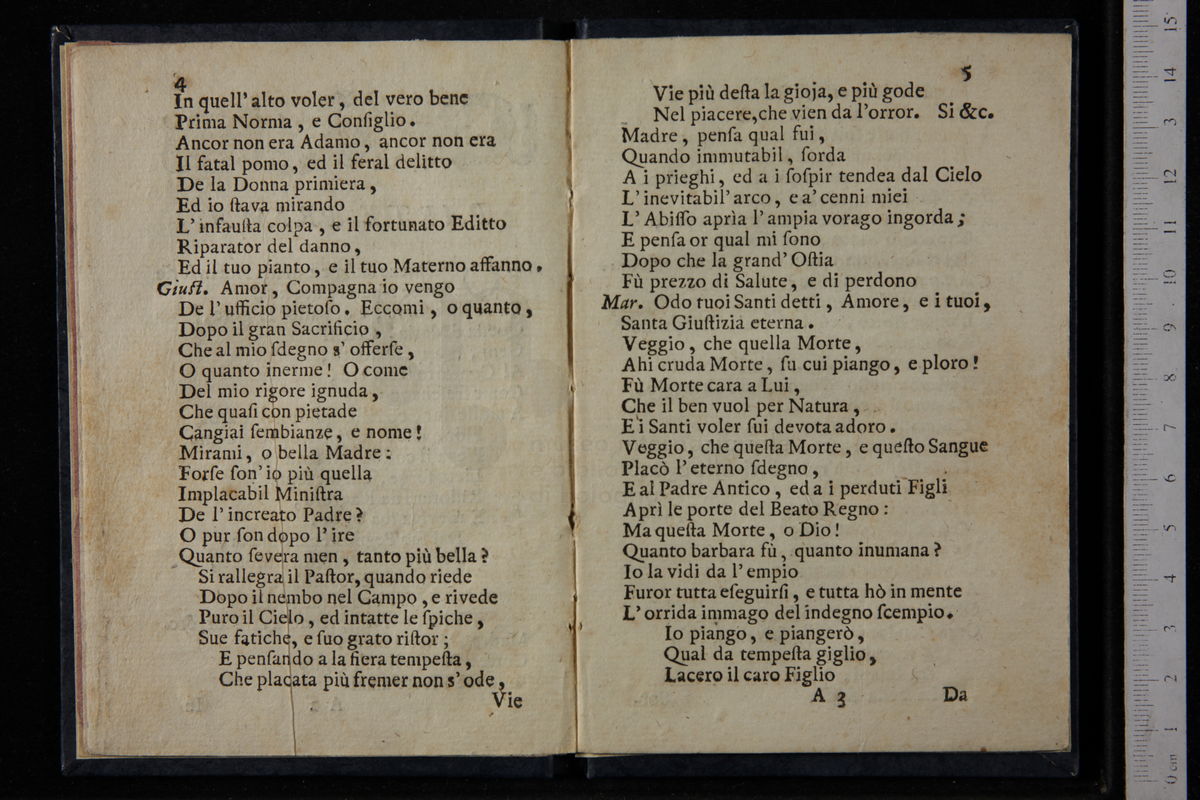 4
In quell' alto voler, del vero bene
Prima Norma, e Conſiglio.
Ancor non era Adamo, ancor non era
Il fatal pomo, ed il feral delitto
De la Donna primiera,
Ed io ſtava mirando
L' infauſta colpa, e il fortunato Editto
Riparator del danno,
Ed il tuo pianto, e il tuo Materno affanno.
Giuſt. Amor, Compagna io vengo
De l' ufficio pietoſo. Eccomi, o quanto,
Dopo il gran Sacrificio,
Che al mio ſdegno s' offerſe,
O quanto inerme! O come
Del mio rigore ignuda,
Che quaſi con pietade
Cangiai ſembianze, e nome!
Mirami, o bella Madre:
Forſe ſon' io più quella
Implacabil Miniſtra
De l' increato Padre?
O pur ſon dopo l' ire
Quanto ſevera men, tanto più bella?
Si rallegra il Paſtor, quando riede
Dopo il nembo nel Campo, e rivede
Puro il Cielo, ed intatte le ſpiche,
Sue fatiche, e ſuo grato riſtor;
E penſando a la fiera tempeſta,
Che placata più fremer non s' ode,
Vie
5
Vie più deſta la gioja, e più gode
Nel piacere, che vien da l'orror. Si &c.
Madre, penſa qual fui,
Quando immutabil, ſorda
A i prieghi, ed a i ſoſpir tendea dal Cielo
L' inevitabil' arco, e a' cenni miei
L' Abiſſo aprìa l' ampia vorago ingorda;
E penſa or qual mi ſono
Dopo che la grand' Oſtia
Fù prezzo di Salute, e di perdono
Mar. Odo tuoi Santi detti, Amore, e i tuoi,
Santa Giuſtizia eterna.
Veggio, che quella Morte,
Ahi cruda Morte, ſu cui piango, e ploro!
Fù Morte cara a Lui,
Che il ben vuol per Natura,
E i Santi voler ſui devota adoro.
Veggio, che queſta Morte, e queſto Sangue
Placò l' eterno ſdegno,
E al Padre Antico, ed a i perduti Figli
Aprì le porte del Beato Regno:
Ma queſta Morte, o Dio!
Quanto barbara fù, quanto inumana?
Io la vidi da l' empio
Furor tutta eſeguirſi, e tutta hò in mente
L' orrida immago del indegno ſcempio.
Io piango, e piangerò,
Qual da tempeſta giglio,
Lacero il caro Figlio
A 3 Da
0 cm 1 2 3 4 5 6 7 8 9 10 11 12 3 14 15